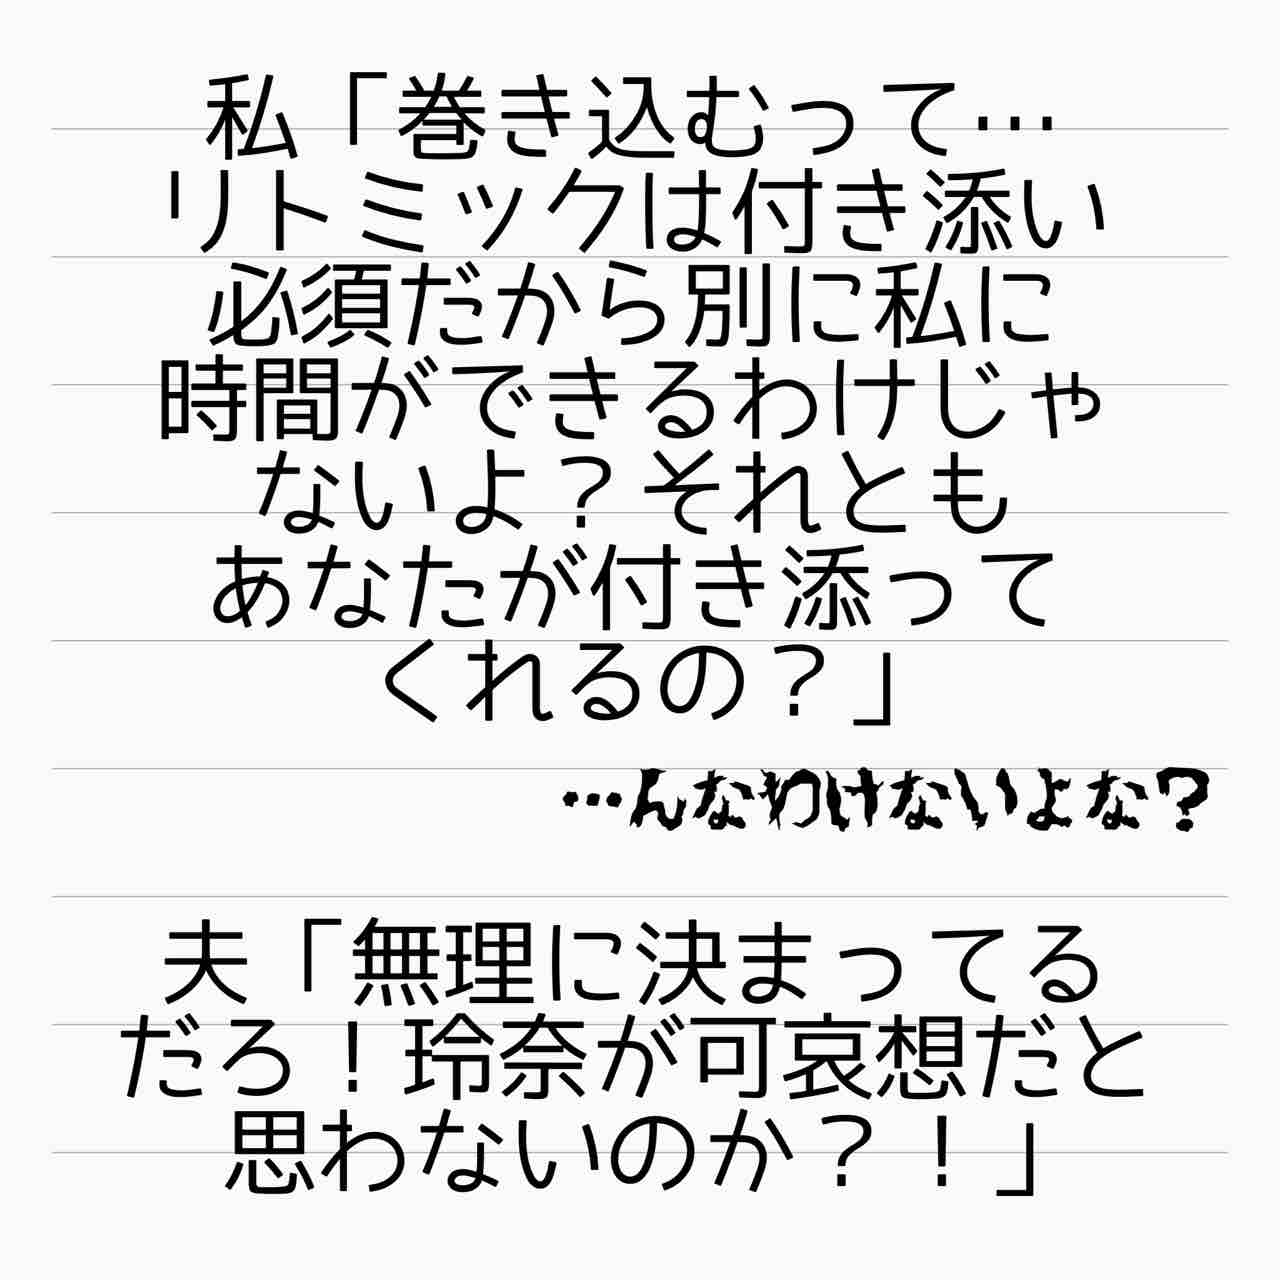 私「巻き込むって…
リトミックは付き添い
必須だから別に私に
時間ができるわけじゃ
ないよ？それとも
あなたが付き添って
くれるの？」
…んなわけないよな？
夫「無理に決まってる
だろ！玲奈が可哀想だと
思わないのか？！」